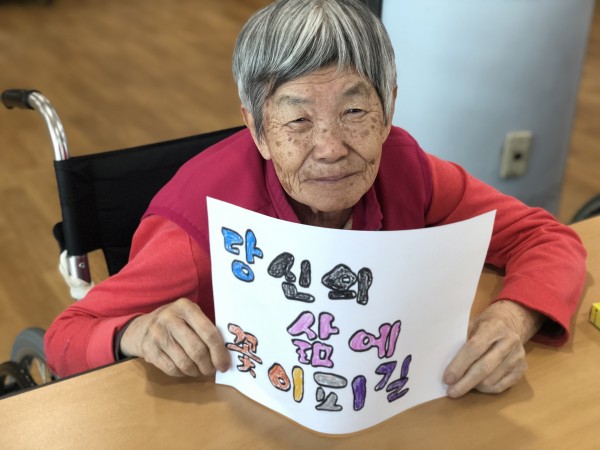 당신의
삶에
꽃이되길